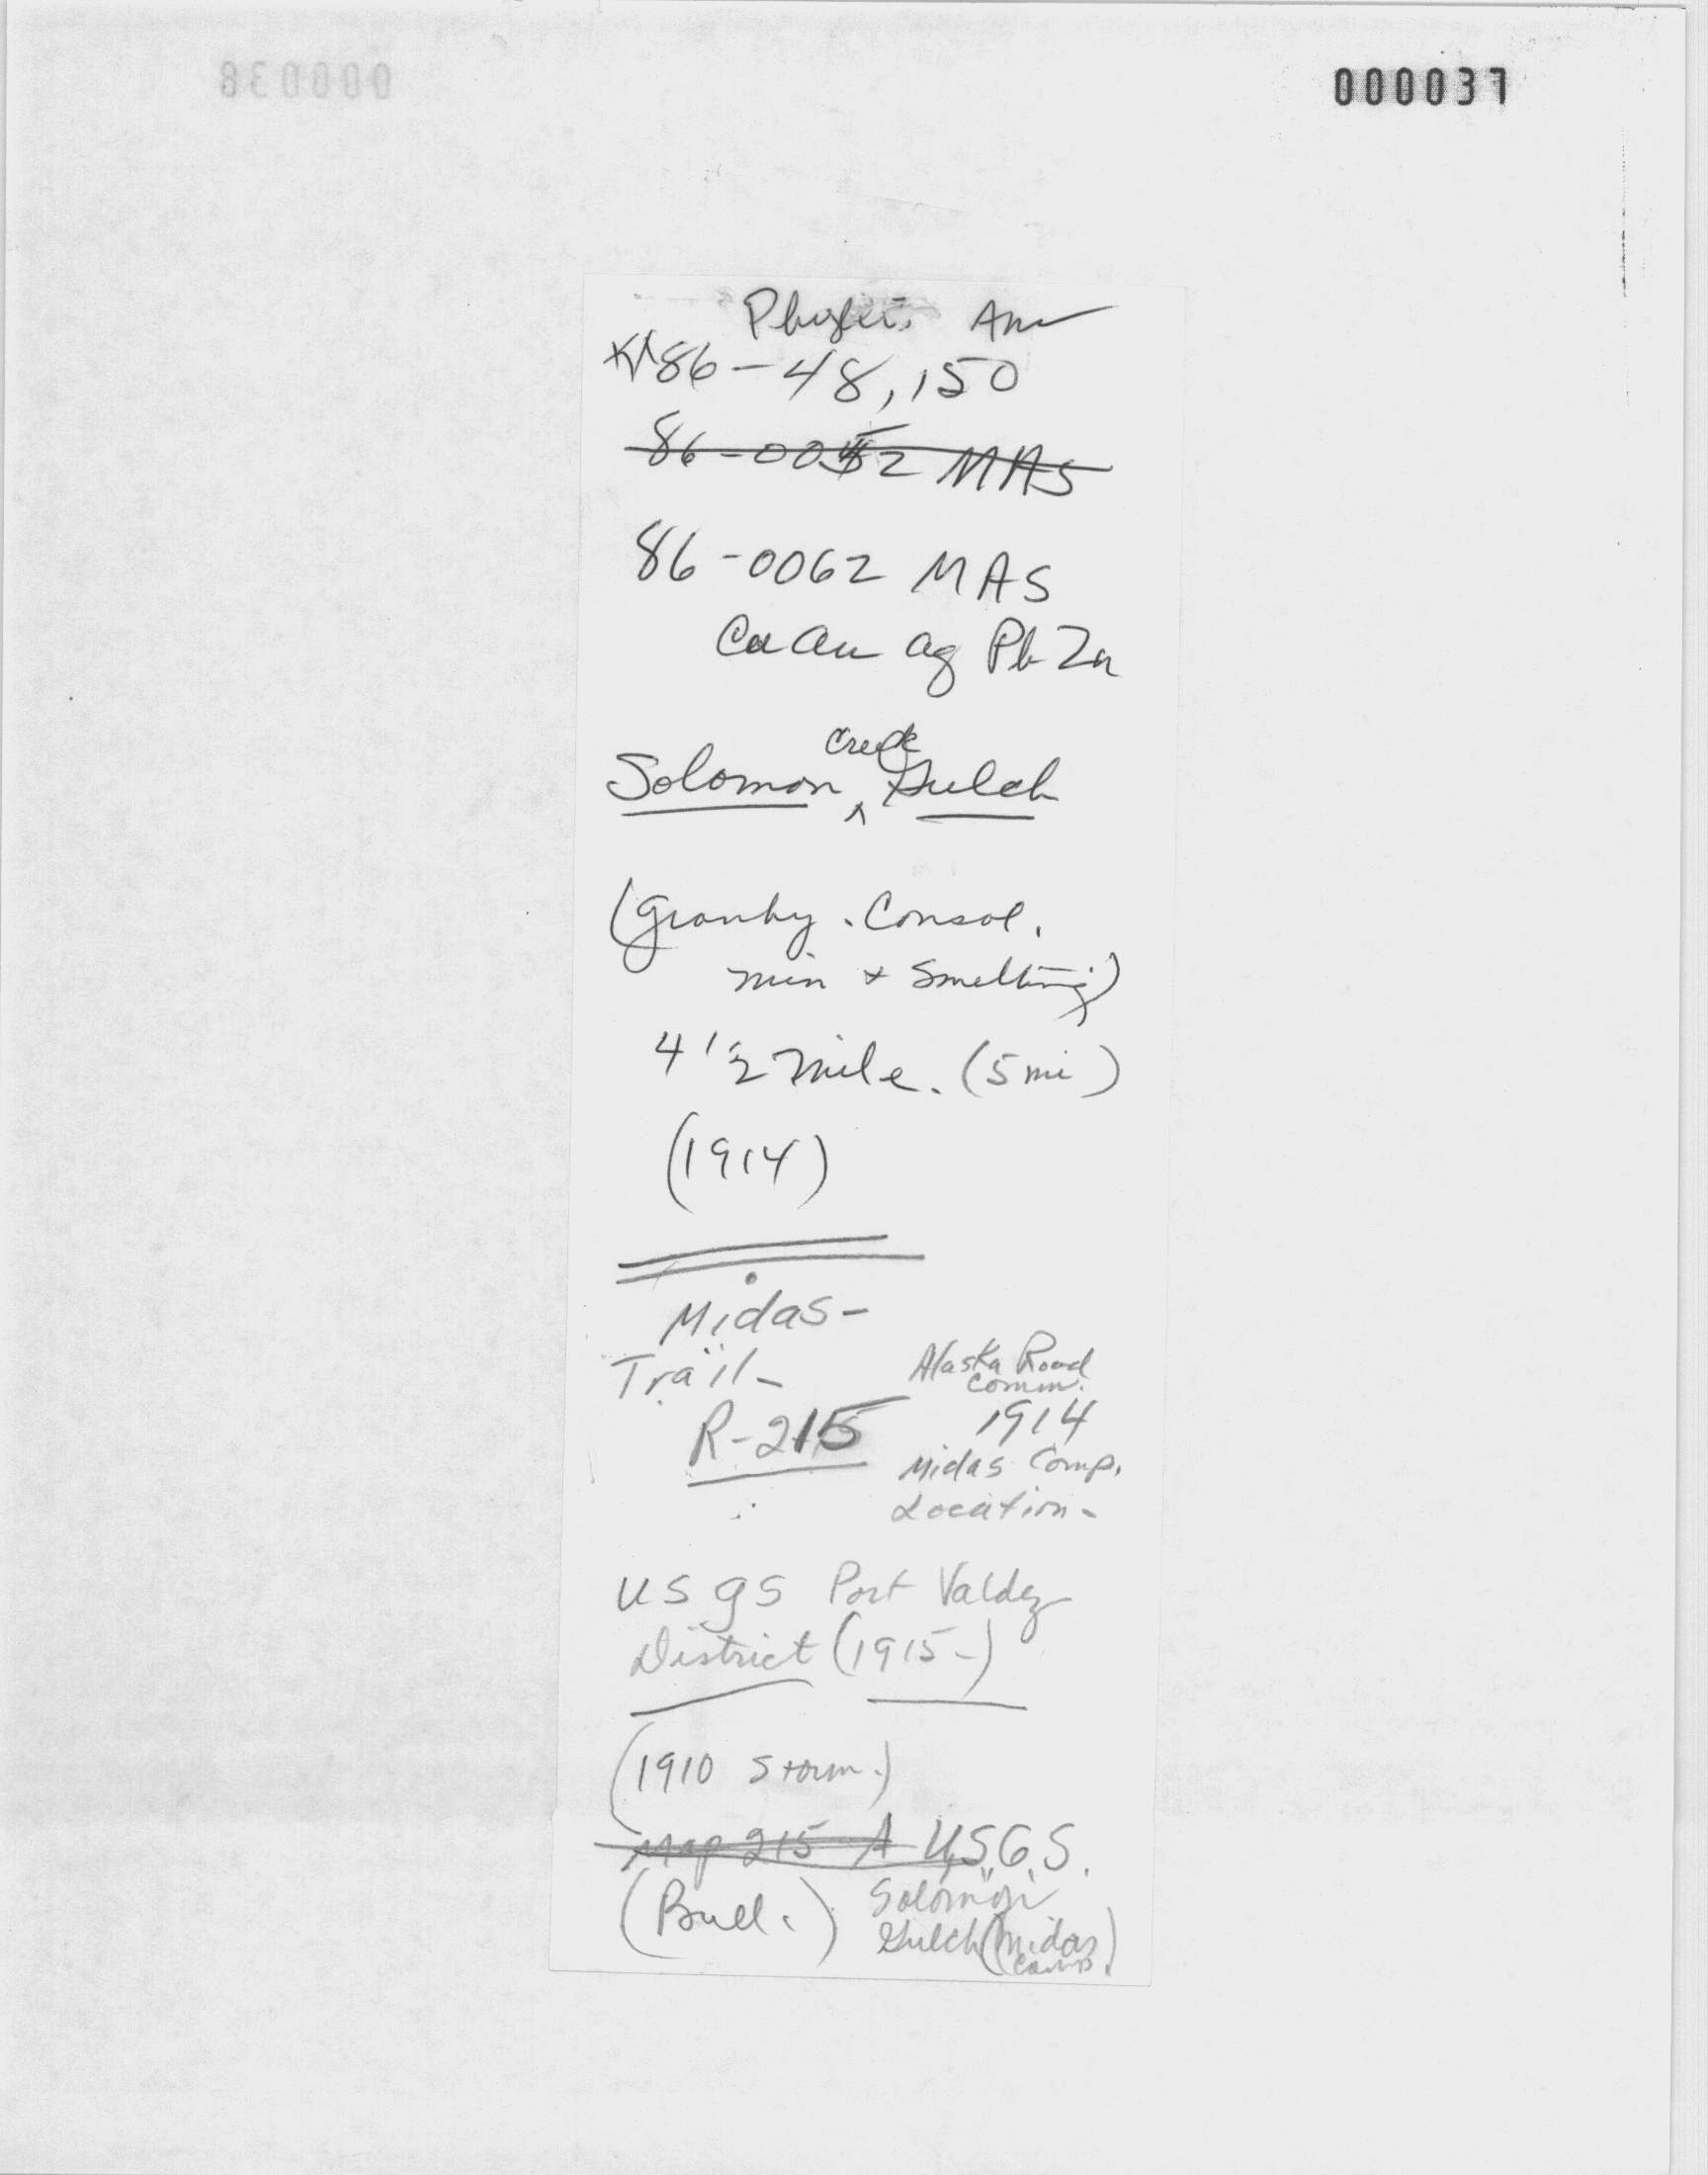 000037
86-48,150
86-0052 MAS
86-0062 MAS
Cu Au Ag Pb Zn
Solomon Creek Gulch
(Granby. Consol.
min + Smelting)
4 1/2 mile. (5 mi)
(1914)
Midas-
Trail-
R-215
Alaska Road
Comm.
1914
Midas Comp.
Location-
USGS Port Valdez
District (1915-)
(1910 Storm.)
Map 215 A U.S.G.S.
(Bull.)
Solomon
Gulch (Midas
Comp.)